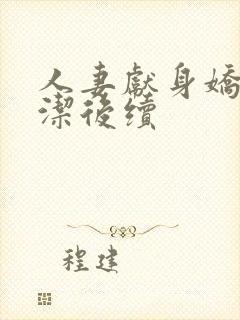 人妻獻身嬌
潔後續
程建